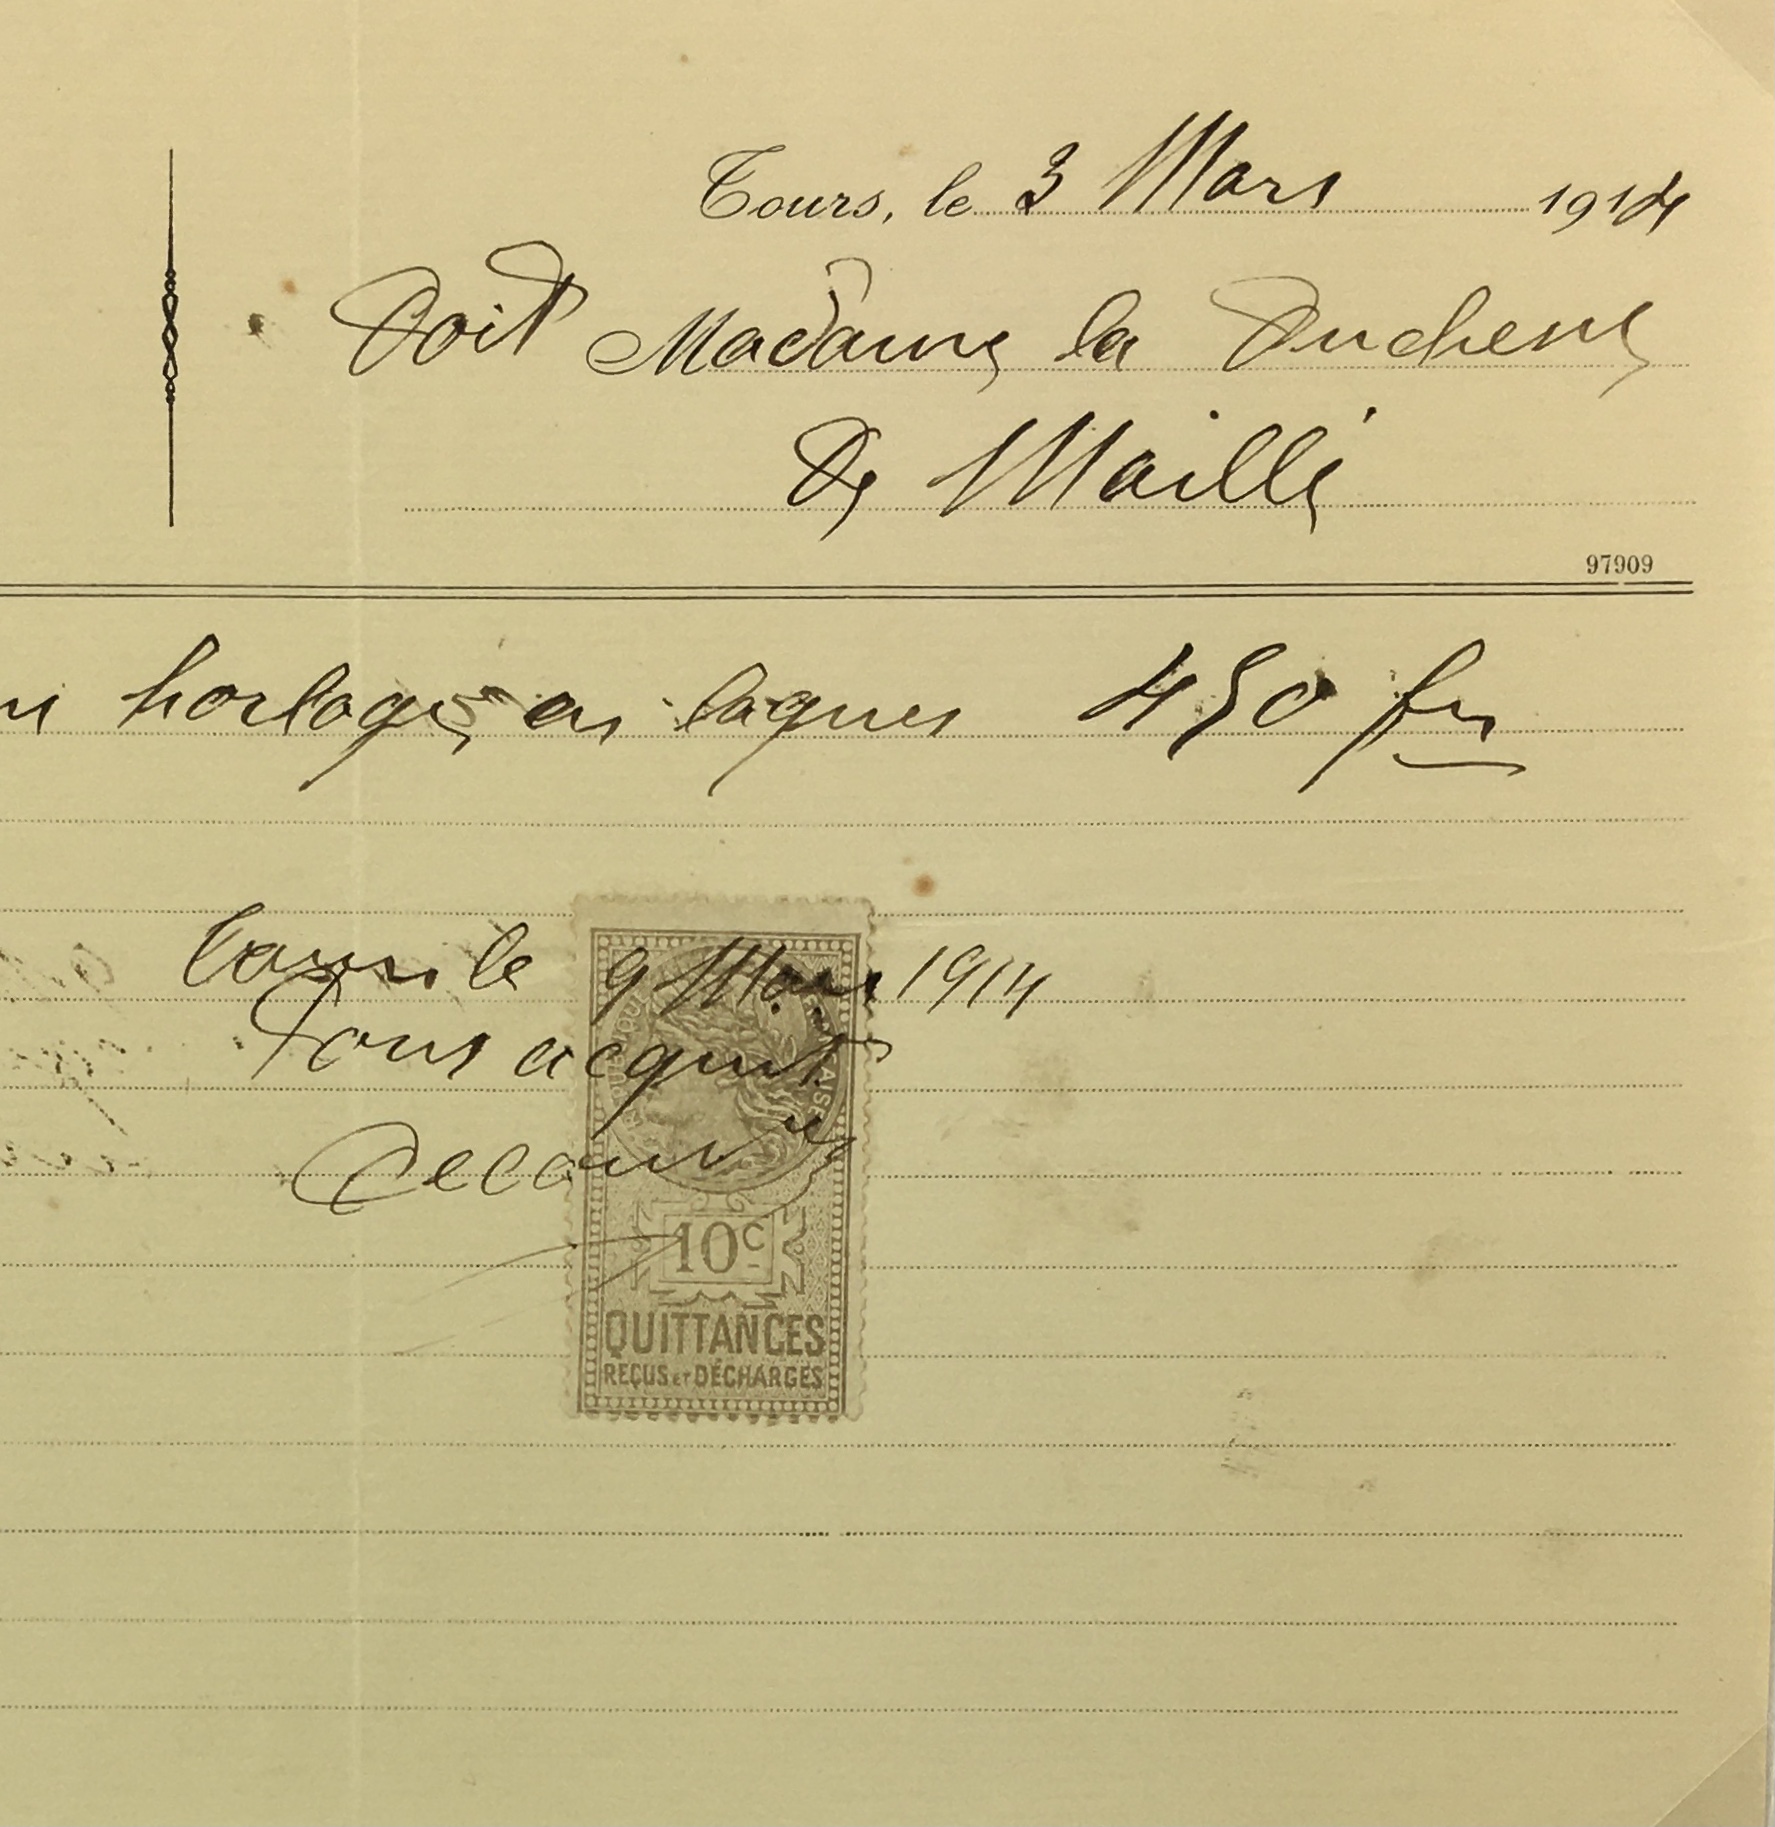 Tours, le 3 Mars 1914
Doit Madame la Duchesse
de Maillé
97909
horloge en laques 450 frs
Tours le 9 Mars 1914
Pour acquit
10c
QUITTANCES
REÇUS ET DÉCHARGES